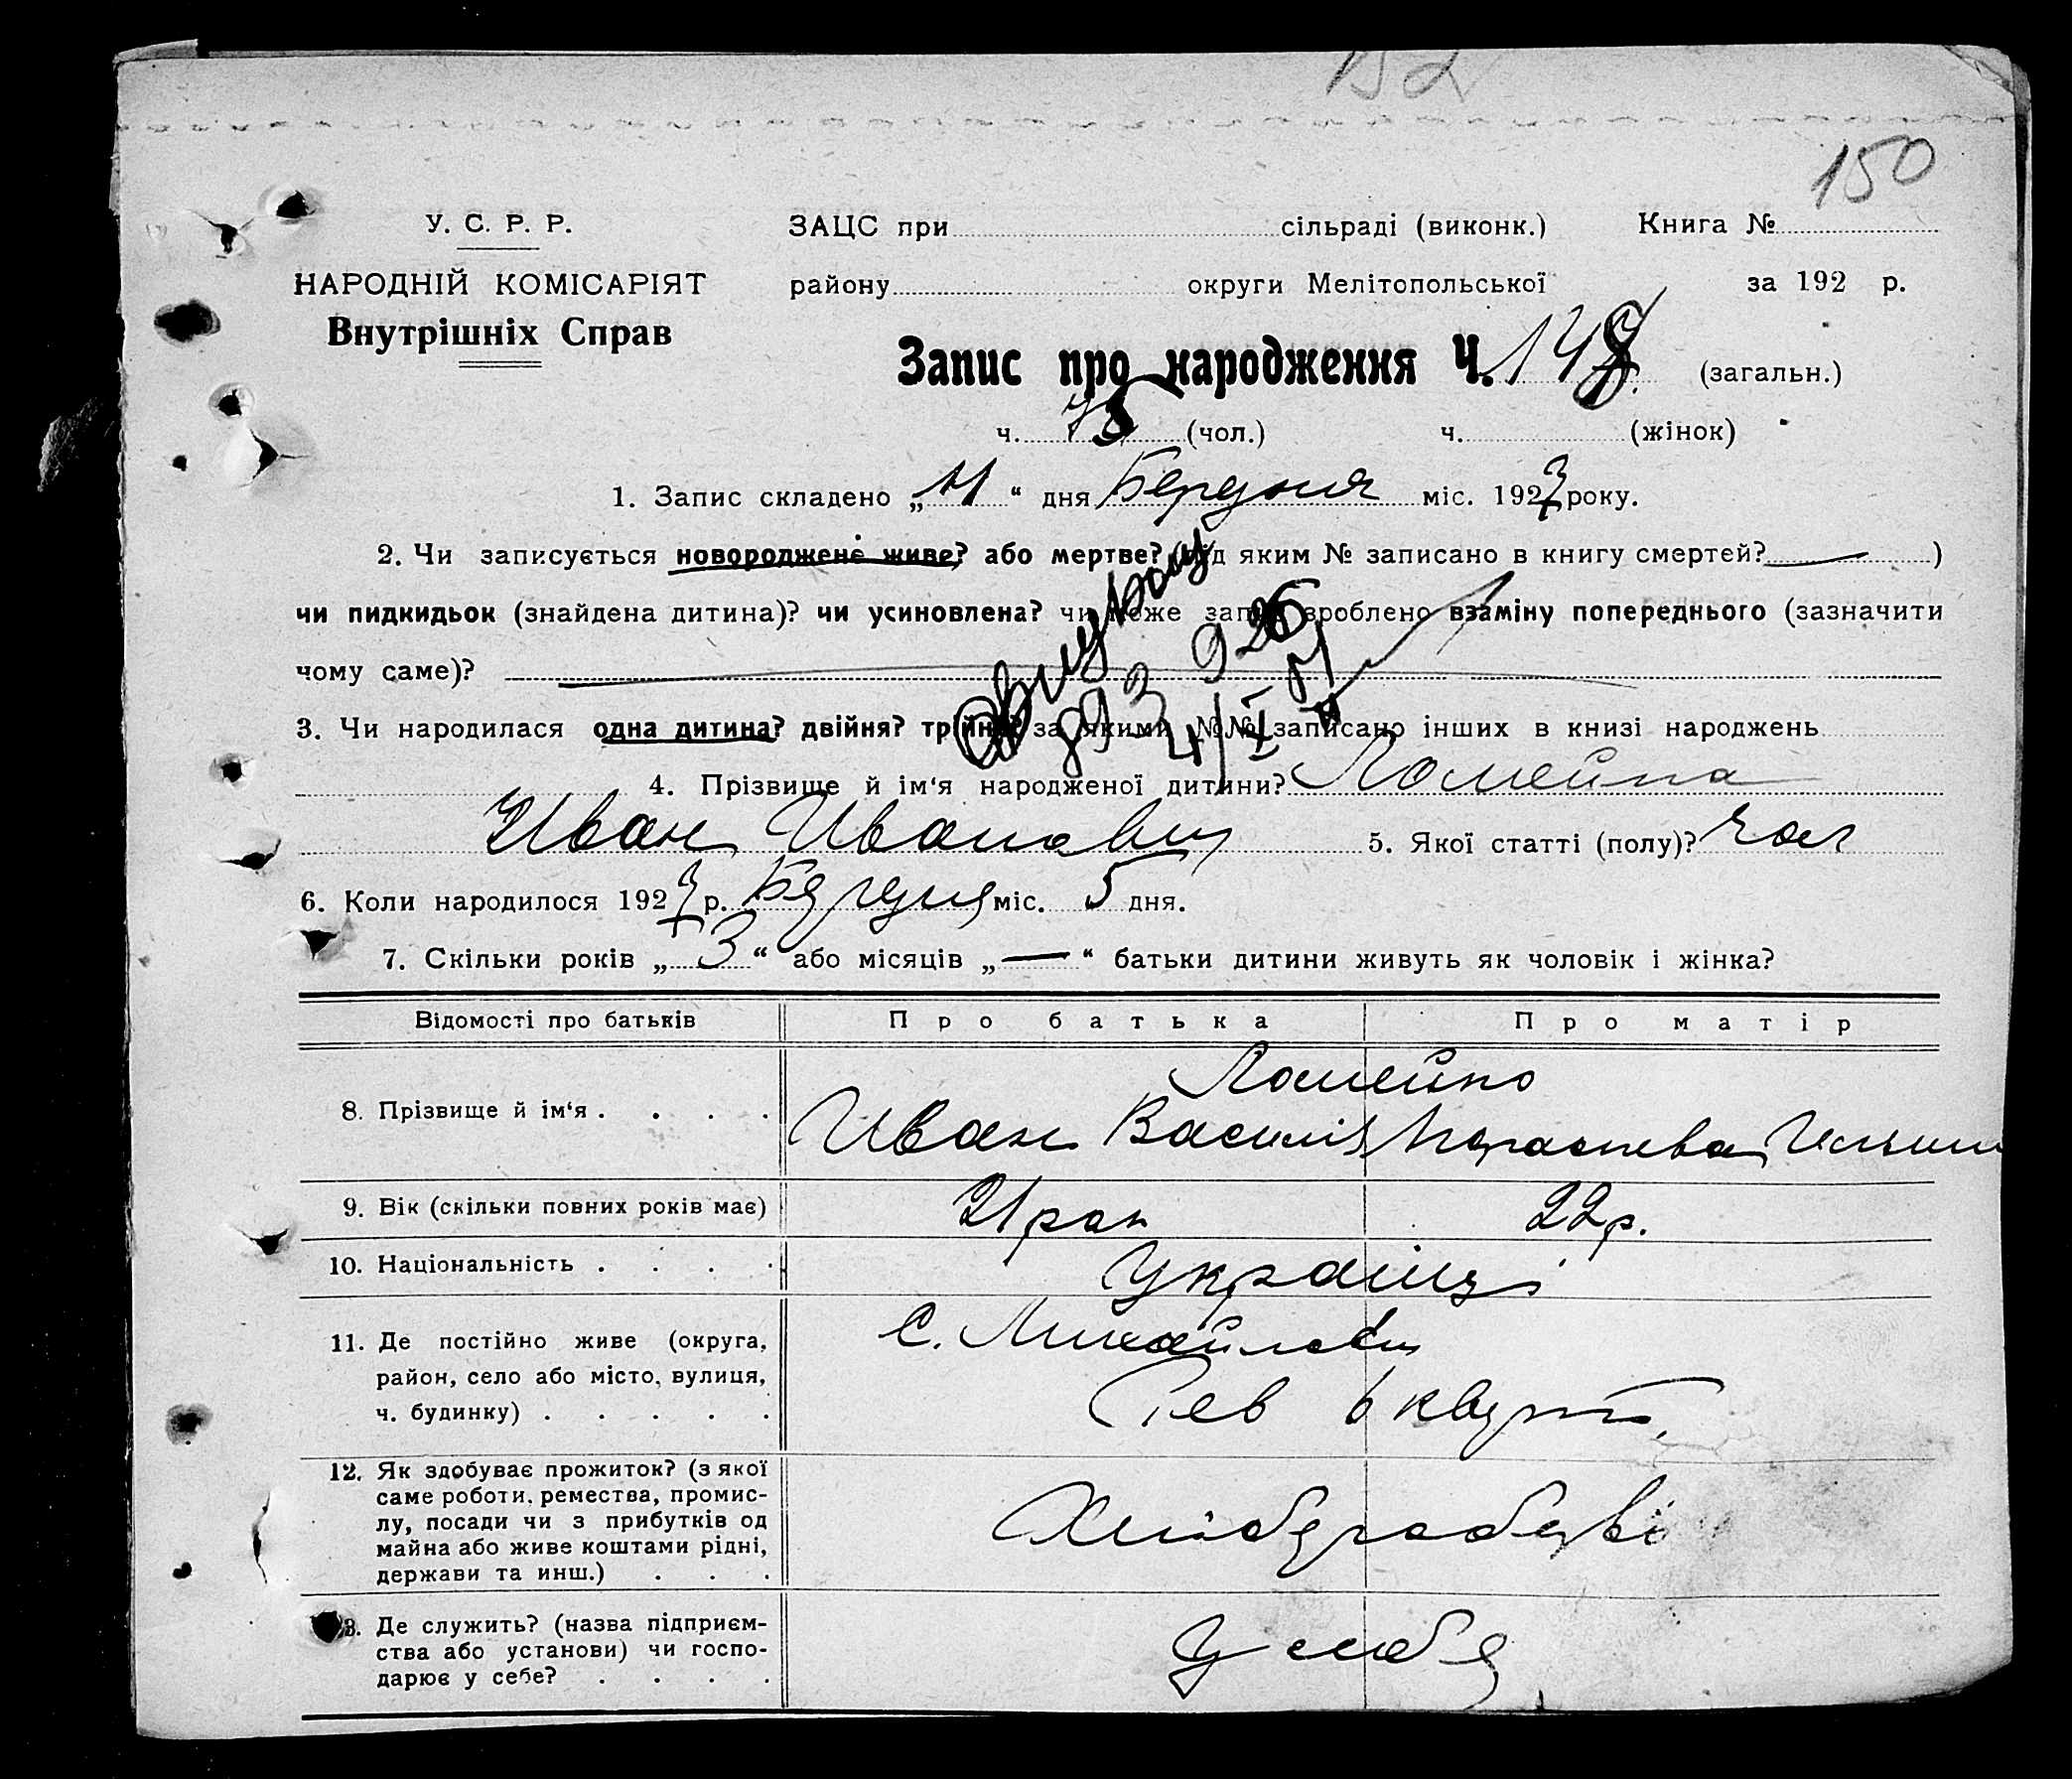 152
150
У. С. Р. Р.
ЗАЦС при сільраді (виконк.) Книга №
НАРОДНІЙ КОМІСАРІЯТ
району округи Мелітопольської за 192 р.
Внутрішніх Справ
Запис про народження Ч. 148 (загальн.)
ч. 78 (чол.) ч. (жінок)
1. Запис складено „11“ дня Березня міс. 1927 року.
2. Чи записується новороджене живе? або мертве? (під яким № записано в книгу смертей? — )
чи пидкидьок (знайдена дитина)? чи усиновлена? чи може запис зроблено взаміну попереднього (зазначити
чому саме)?
3. Чи народилася одна дитина? двійня? трійня? за якими №№ записано інших в книзі народжень
4. Прізвище й ім‘я народженої дитини? Ломейко
Иван Иванович 5. Якої статті (полу)? чол
6. Коли народилося 1927 р. Березня міс. 5 дня.
7. Скільки років „3“ або місяців „—“ батьки дитини живуть як чоловік і жінка?
Відомості про батьків Про батька Про матір
Ломейко
8. Прізвище й ім‘я . . . . Иван Василів Параскева
9. Вік (скільки повних років має) 21 рок 22 р.
10. Національність . . . . Українці
11. Де постійно живе (округа, с. Михайлівки
район, село або місто, вулиця, Рев 6 кварт.
ч. будинку) . . . . .
12. Як здобуває прожиток? (з якої
саме роботи, ремества, промис-
лу, посади чи з прибутків од Хліборобстві
майна або живе коштами рідні,
держави та инш.) . . .
13. Де служить? (назва підприєм-
ства або установи) чи госпо- У себе
дарює у себе? . . . .